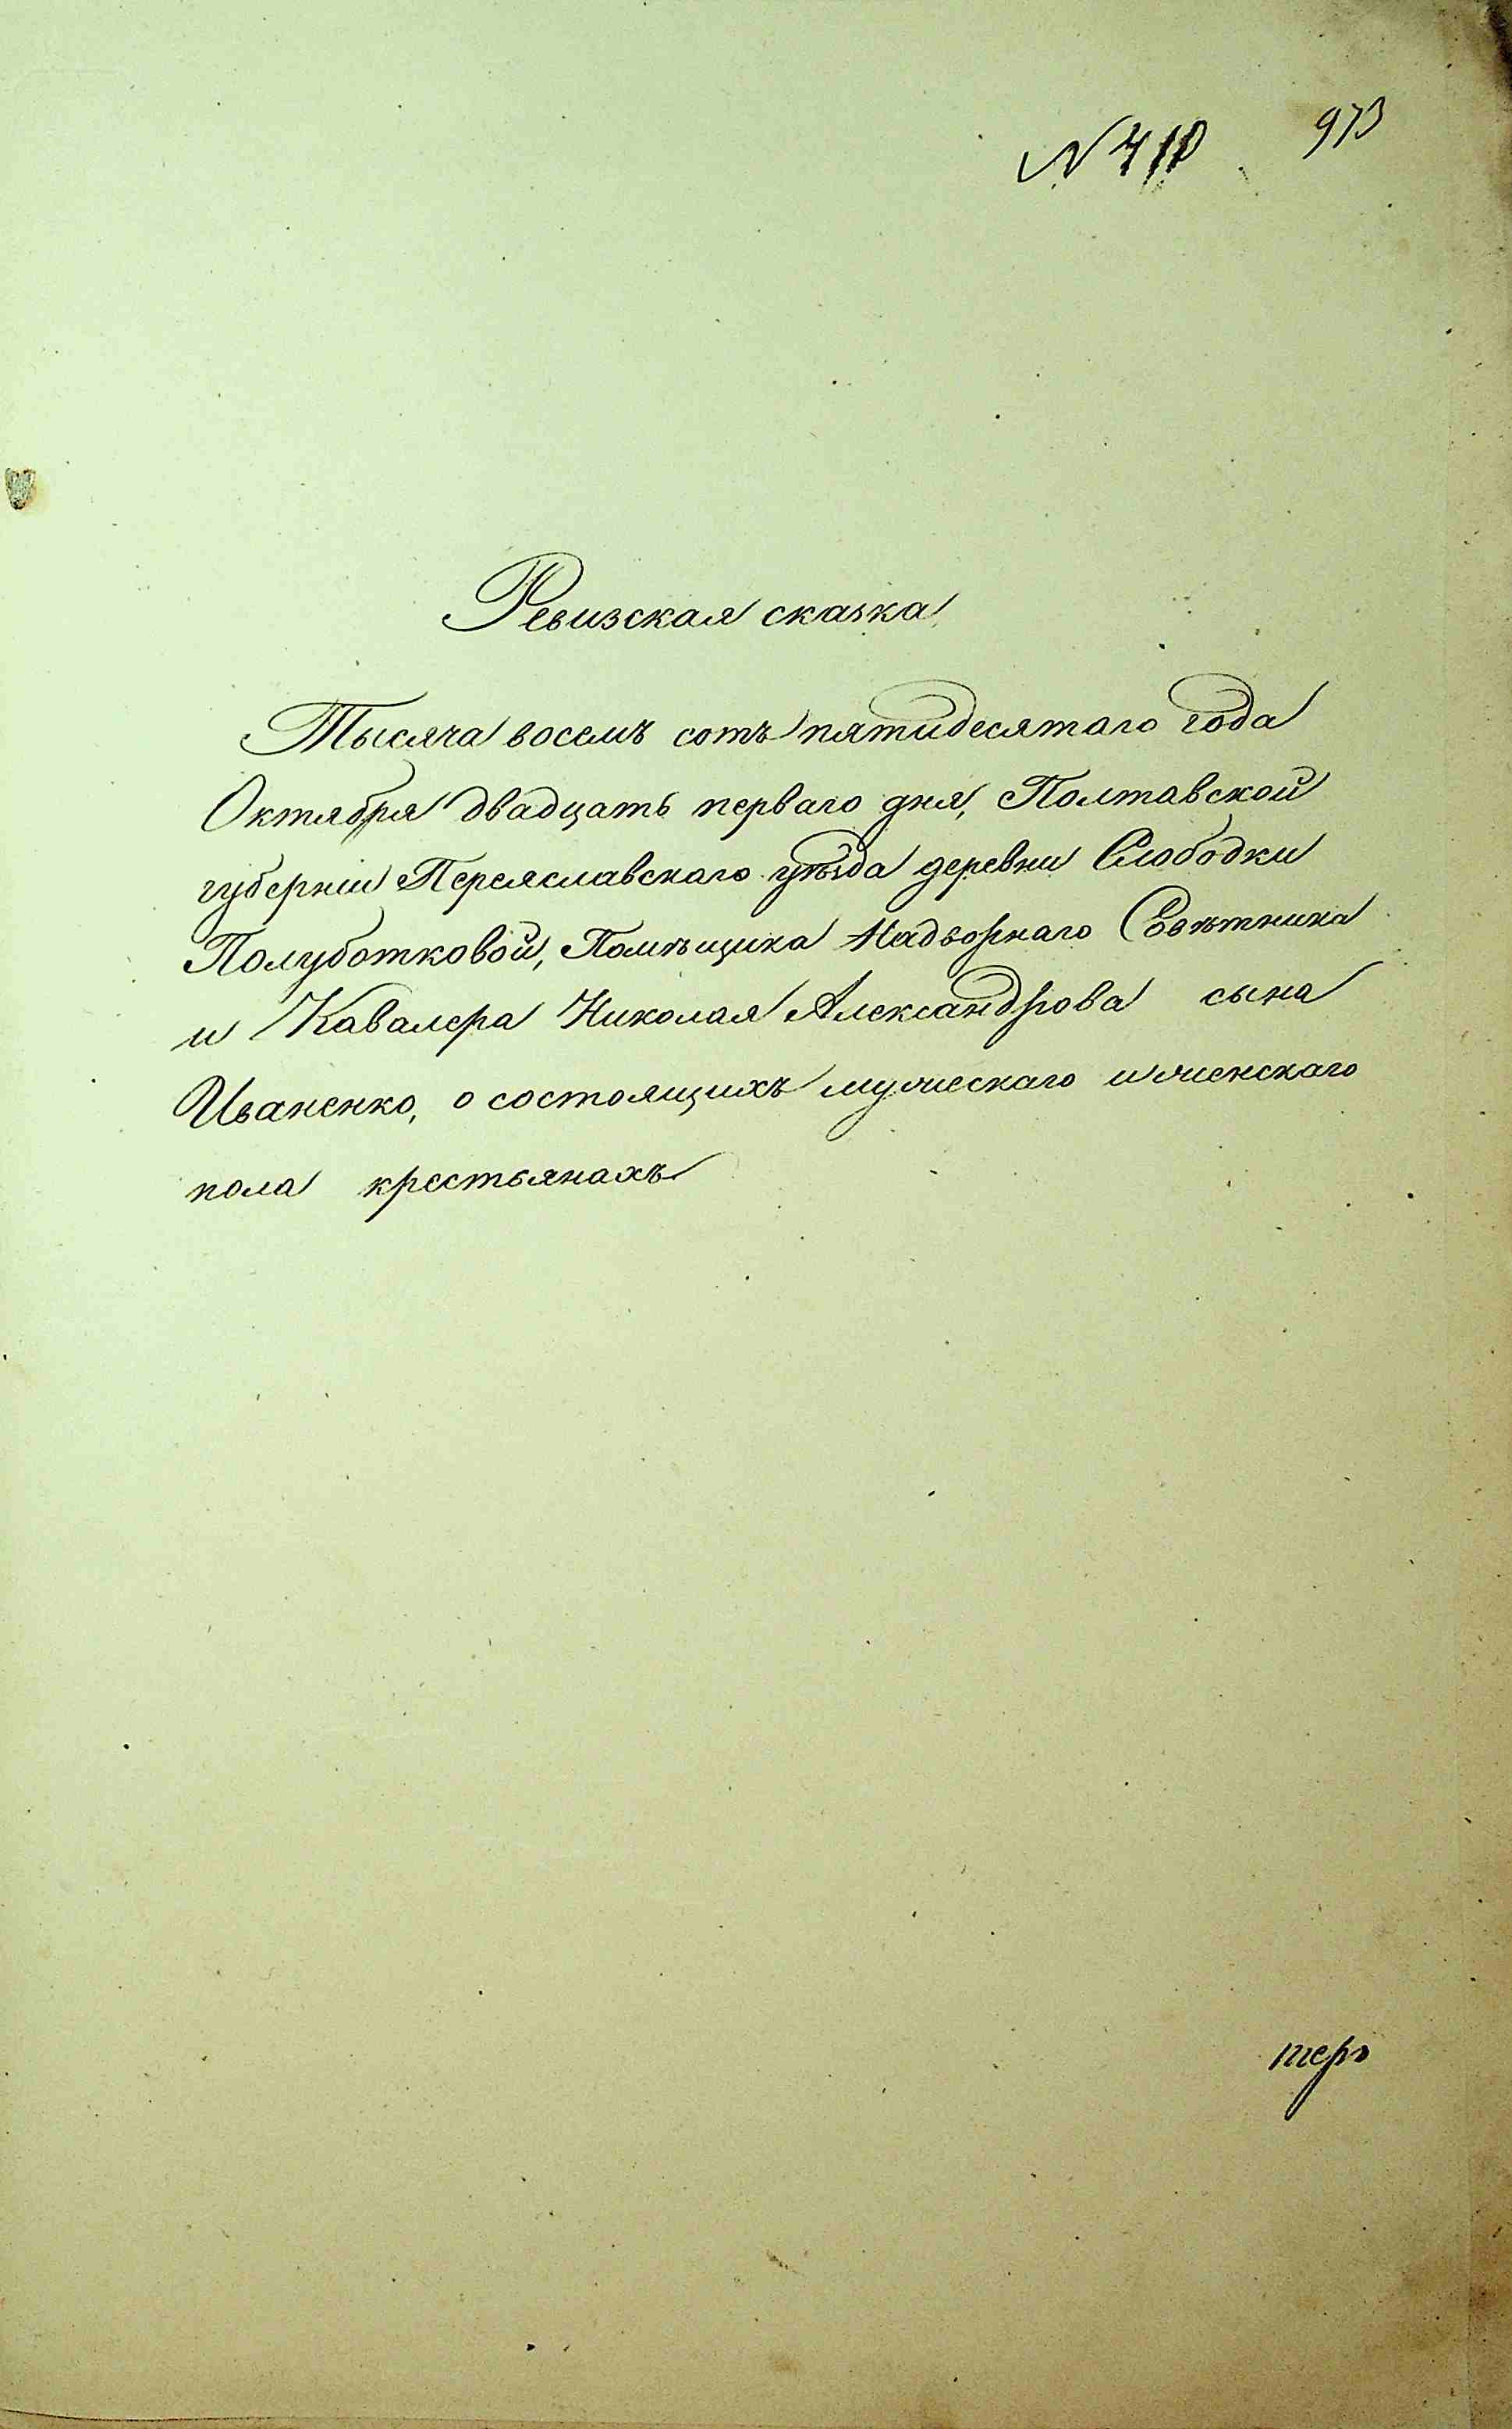 973
Ревизская сказка
Тысяча восемъ сотъ пятидесятаго года
Октября двадцать перваго дня, Полтавской
губерніи Переяславскаго уѣзда деревни Слободки
Полуботковой, Помѣщика Надворнаго Совѣтника
и Кавалера Николая Александрова сына
Иваненко, о состоящихъ мужескаго и женскаго
пола крестьянахъ